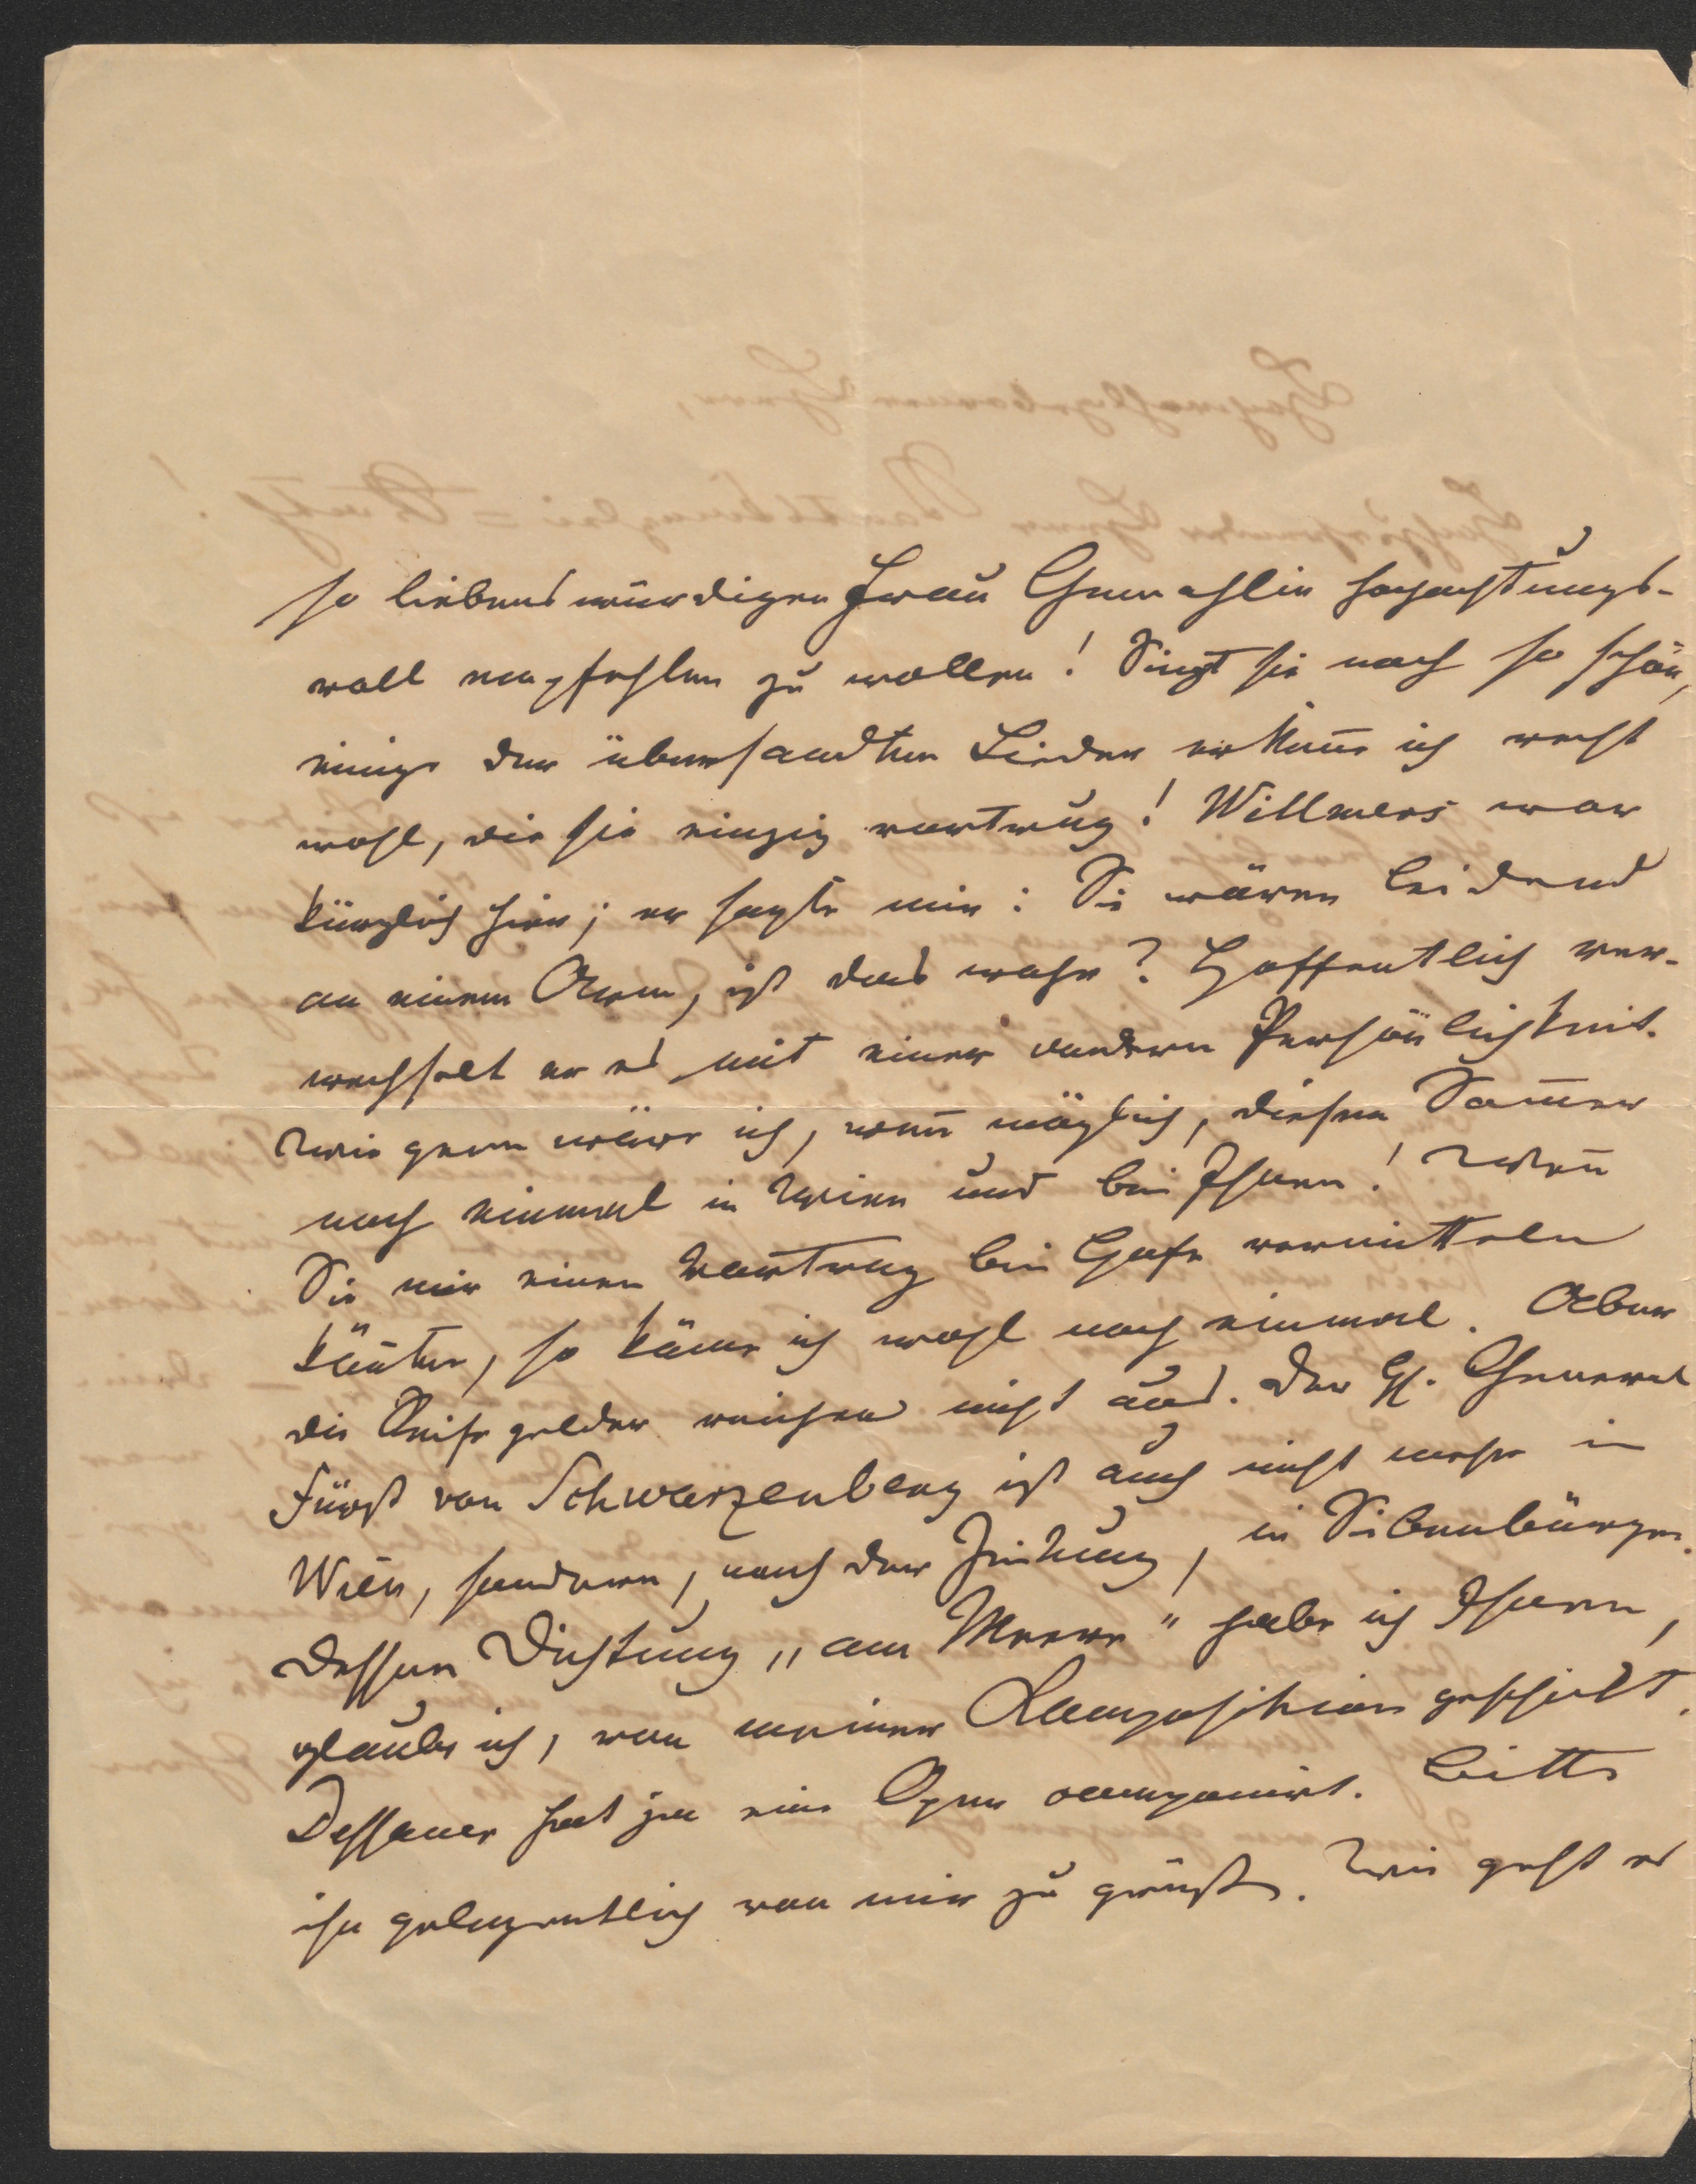 so liebenswürdigen Frau Gemahlin hochachtungs-
voll empfehlen zu wollen! Singt sie noch so schön,
einige der übersandten Lieder erkenne ich recht
wohl, die sie einzig vortrug! Willmers war
kürzlich hier; er sagte mir: Sie wären leidend
an einem Arm, ist das wahr? Hoffentlich ver-
wechselt er es mit einer andern Persönlichkeit.
Wie gern wäre ich, wenn möglich, diesen Sommer
noch einmal in Wien und bei Ihnen! Wenn
Sie mir einen Vortrag bei Hofe vermitteln
könnten, so käme ich wohl noch einmal. Aber
die Reisegelder reichen nicht aus. Der H. General
Fürst von Schwarzenberg ist auch nicht mehr in
Wien, sondern, nach der Zeitung, in Siebenbürgen.
Dessen Dichtung „am Meere" habe ich Ihnen,
glaube ich, von meiner Komposition geschickt.
Dessauer hat ja eine Oper componirt. Bitte
ihn gelegentlich von mir zu grüßen. Wie geht es